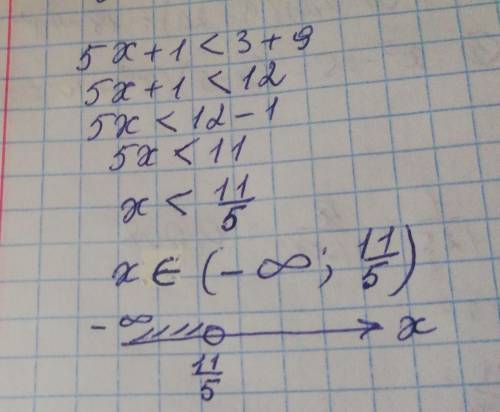 5x+1<3+9
5x+1<12
5x<12-1
5x<11
x < 11/5
x∈(-∞; 11/5)
-∞ x
11/5